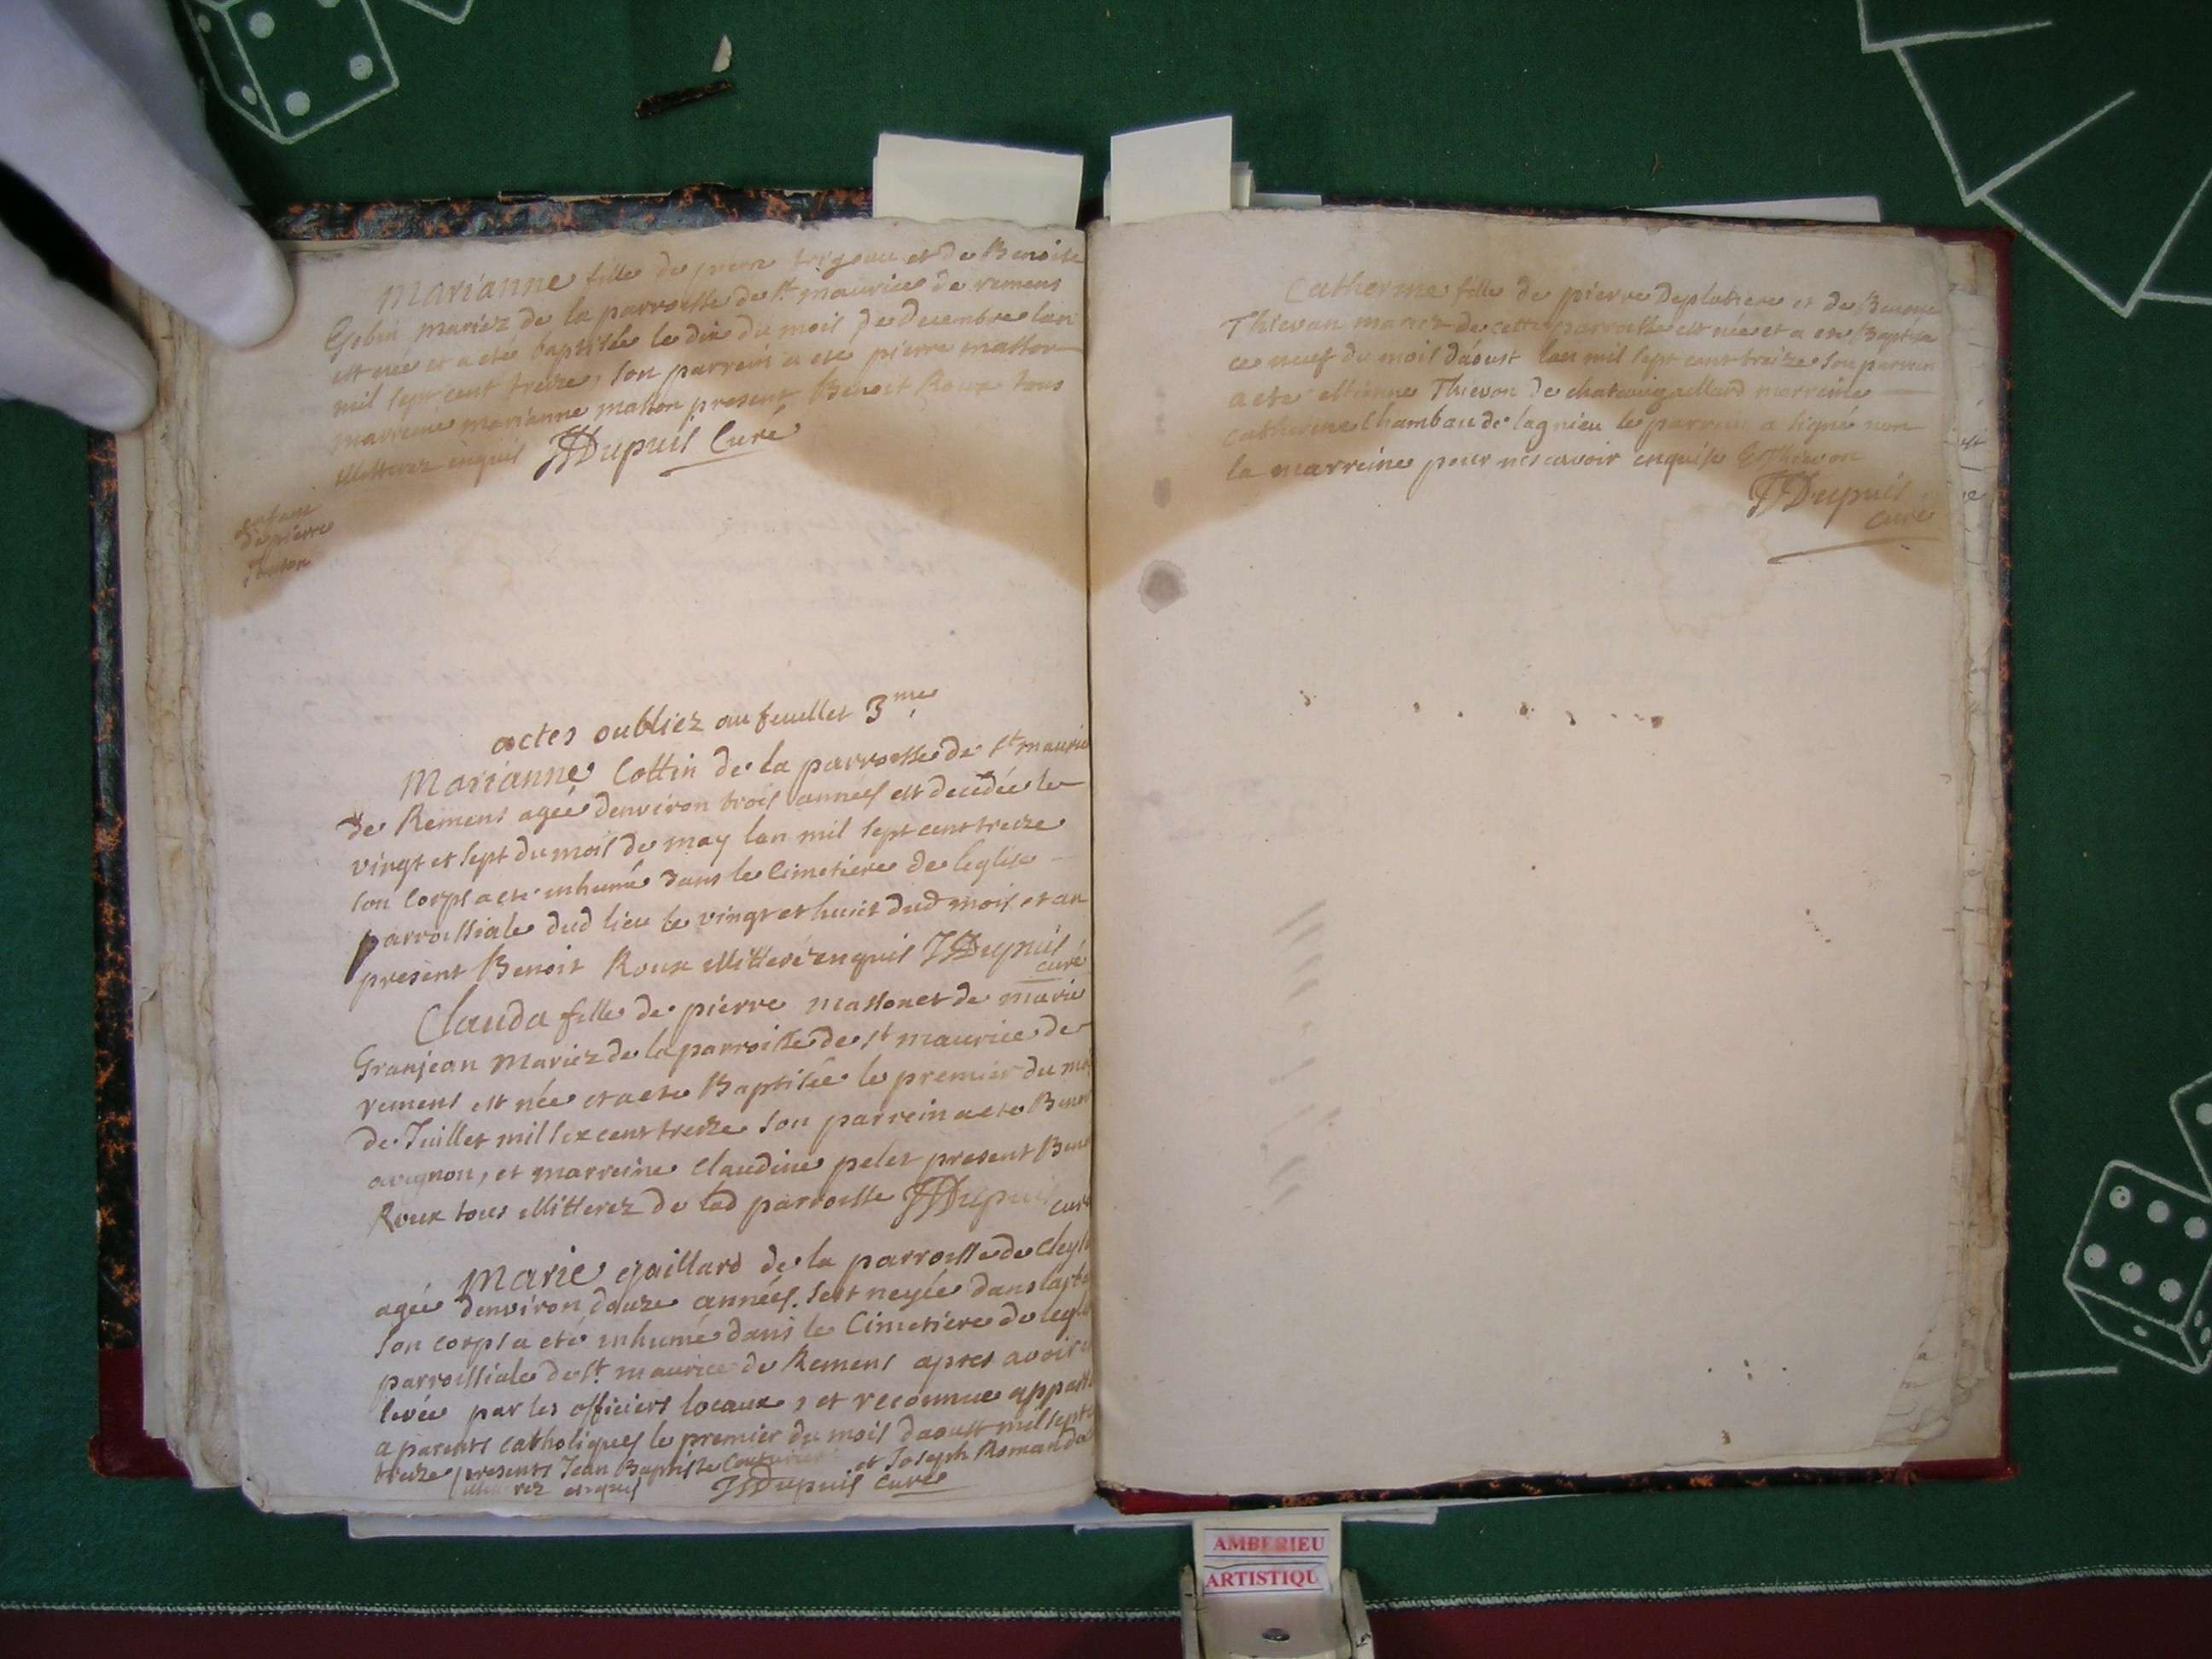 Marianne fille de pierre et de Benoite
Gobin mariez de la parroisse de st maurice de remens
est née et a eté baptisée le dix du mois de decembre lan
mil sept cent treize, son parrein a eté pierre masson
marreine marianne masson present Benoit Roux tous
illitterez enquis JJDupuis Curé
enfant
de pierre
actes oubliez au feuillet 3me
Marianne Cottin de la parroisse de st maurice
de Remens agée denviron trois années est decedée le
vingt et sept du mois de may lan mil sept cent treize
son corps a eté inhumé dans le Cimetiere de leglise
parroissiale dud lieu le vingt et huict dud mois et an
present Benoit Roux illitteré enquis JJDupuis
curé
Clauda fille de pierre masson et de marie
Granjean mariez de la parroisse de st maurice de
remens est née et a eté Baptisée le premier du moi
de Juillet mil six cent treize son parrein a eté Benoi
avignon, et marreine Claudine pelet present Beno
Roux tous illitterez de lad parroisse JJDupuis cure
Marie gaillard de la parroisse de
agée denviron douze années sest neyée dans
son corps a eté inhumé dans le Cimetiere de legli
parroissiale de st maurice de Remens apres avoir
levée par les officiers locaux, et reconnue
a parents catholiques le premier du mois daoust mil sept
treize presents Jean Baptiste et Joseph Roman
enquis JJDupuis curé
Catherine fille de pierre Deplatiere et de Benoite
Thievan mariez de cette parroisse est née et a eté Baptisée
ce neuf du mois daoust lan mil sept cent treize son parrein
a eté estienne Thievon de chateaugaillard marreine
catherine Chambau de lagnieu le parrein a signé non
la marreine pour ne scavoir enquise E Thievon
JJDupuis
curé
AMBERIEU
ARTISTIQU